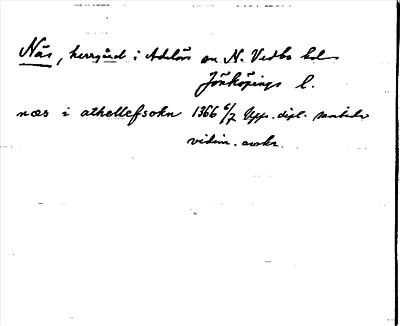 Näs, herrgård i Adelövs sn N. Vedbo hd
Jönköpings l.
næs i athellefsokn 1366 6/7 Upps. dipl.
vidim. avskr.